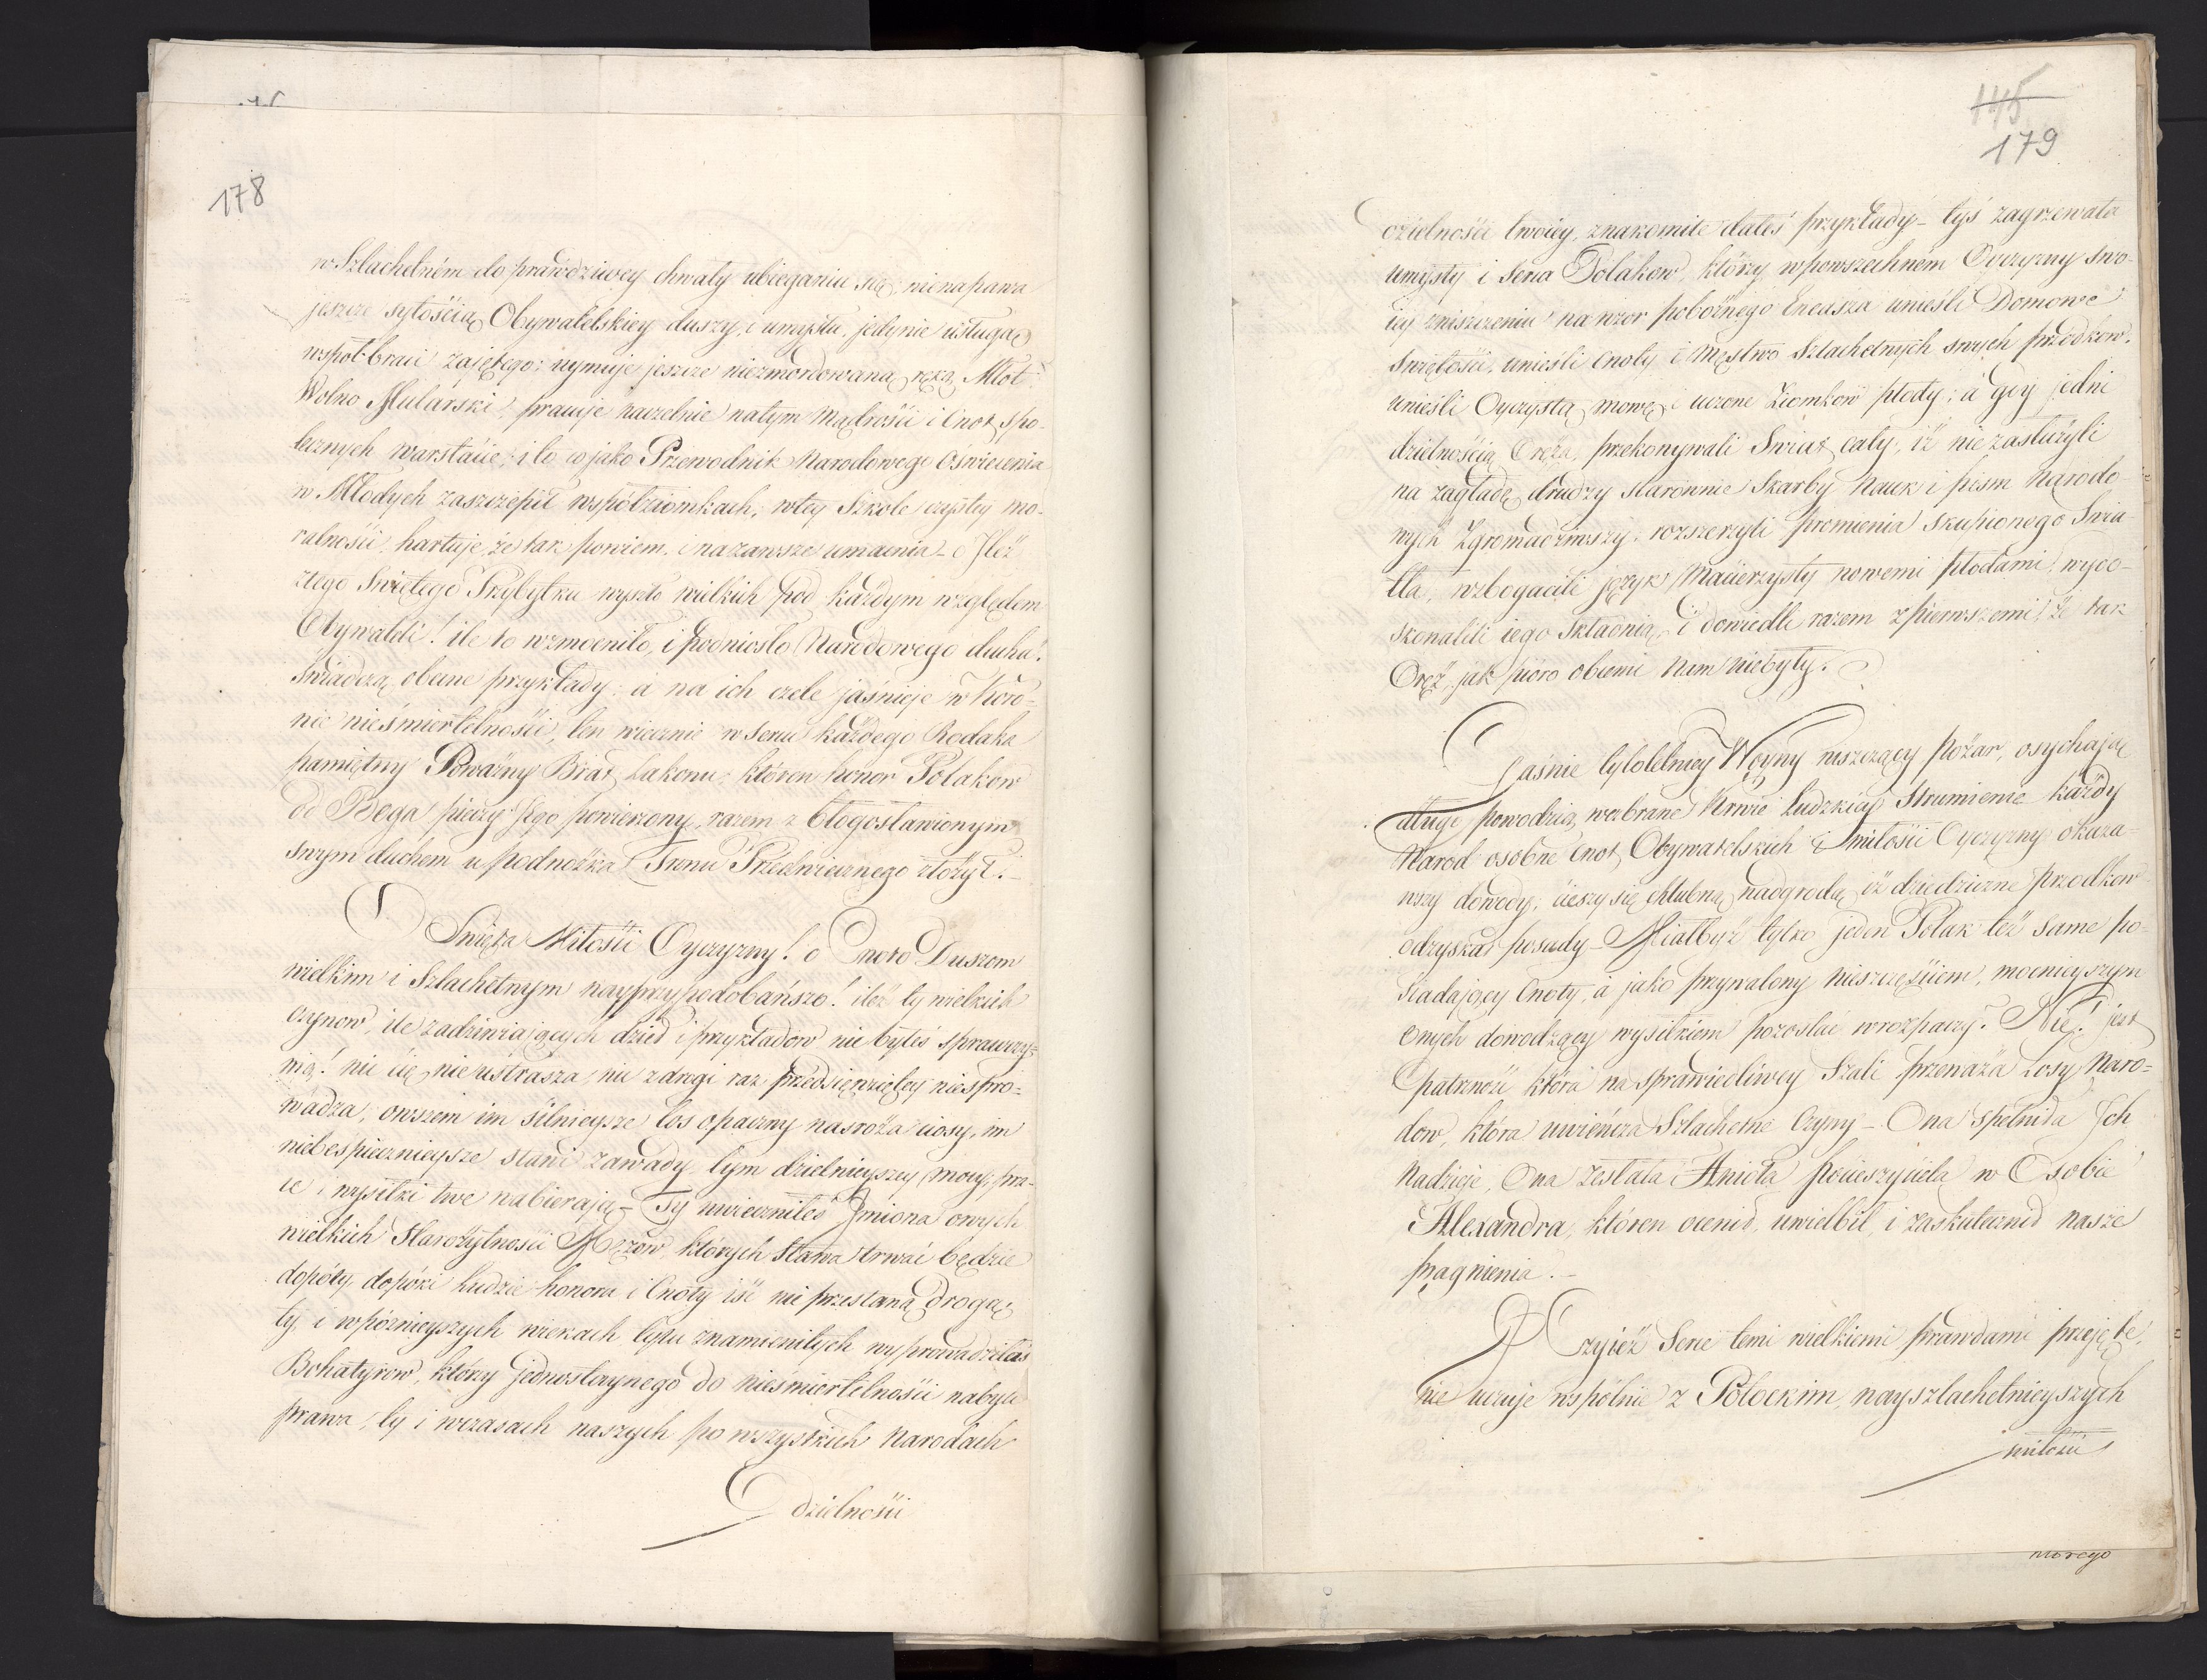 178
w Szlachetném do prawdziwey chwały ubieganiu się; nie napawa
jeszcze sytością Obywatelskiey duszy, i umysłu, jedynie usługą
współ-braci zajętego: uymuje jeszcze niezmordowaną ręką Młot
Wolno Mularski, pracuje naczelnie na tym Mądrości i Cnot spo-
łecznych warstacie, i to co jako Przewodnik Narodowego Oświecenia
w Młodych zaszczepił współziomkach, w tey Szkole czystey mo-
ralności, hartuje, że tak powiem, i na zawsze umacnia - o Ileż
z tego Świętego Przybytku wyszło wielkich pod każdym względem
Obywateli! ile to wzmocniło, i podniosło Narodowego ducha!
Świadczą obecne przykłady: a na ich czele jaśnieje w Koro-
nie nieśmiertelności, ten wiecznie w sercu każdego Rodaka
pamiętny Poważny Brat Zakonu, któren honor Polaków
do Boga pieczy Jego powierzony, razem z błogosławionym
swym duchem u podnóżka Tronu Przedwiecznego złożył. -
Święta Miłości Oyczyzny! o Cnoto Duszom
wielkim i Szlachetnym nayprzypodobańsza! ileż ty wielkich
czynow, ile zadziwiających dzieł i przykładow nie byłaś sprawczy-
nią! nic cię nie ustrasza, nic z drogi raz przedsięwziętey nie spro-
wadza, owszem im silnieysze los opaczny nasroża ciosy, im
niebespiecznieysze stawi zawady, tym dzielnieyszey mocy, pra-
ce i wysiłki twe nabierają - Ty uwieczniłaś Imiona owych
wielkich Starożytności Mężow, których sława trwać będzie
dopóty, dopóki ludzie honoru i Cnoty iść nie przestaną drogą;
ty i w póznieyszych wiekach tylu znamienitych wyprowadziłaś
Bohatyrow, którzy jednostaynego do nieśmiertelności nabyli
prawa; ty i w czasach naszych po wszystkich Narodach
dzielności
145
179
dzielności twoiey, znakomite dałaś przykłady - tyś zagrzewała
umysły i serca Polakow, którzy w powszechném Oyczyzny swo-
iey zniszczeniu na wzor pobożnego Eneasza unieśli Domowe
Świętości, unieśli cnoty i męstwo Szlachetnych swych przodkow.
unieśli Oyczystą mowę i uczone Ziomkow płody; a gdy jedni
dzielnością Oręża, przekonywali Świat cały, iż nie zasłużyli
na zagładę, drudzy starownie skarby Nauk i pism Narodo-
wych zgromadziwszy, rozszerzyli promienia skupionego Świa-
tła, wzbogacili język Macierzysty nowemi płodami, wydo-
skonalili iego składnią, i dowiedli razem z pierwszemi, że tak
Oręż, jak pióro obcemi Nam niebyły.
Gaśnie tyloletniey Woyny niszczący pożar, osychają
długą powodzią wezbrane Krwie ludzkiey Strumienie każdy
Narod osobne Cnot Obywatelskich i miłości Oyczyzny okaza-
wszy dowody, cieszy się chlubną nadgrodą, iż dziedziczne przodkow
odzyskał posady - Miałbyż tylko jeden Polak też same po-
siadający Cnoty, a jako przywalony nieszczęściem, mocnieyszym
onych dowodzący wysileniem pozostać w rozpaczy? Nie! jest
Opatrzność która na sprawiedliwey Szali przeważa Losy Naro-
dow, która uwieńcza Szlachetne Czyny - Ona spełniła Ich
Nadzieje, Ona zesłała Anioła pocieszyciela w Osobie
Alexandra, któren ocenił, uwielbił, i zaskutecznił nasze
pragnienia. -
Czyież Serce temi wielkiemi prawdami przejęte,
nie uczuje wspólnie z Potockim nayszlachetnieyszych
miłości
morego